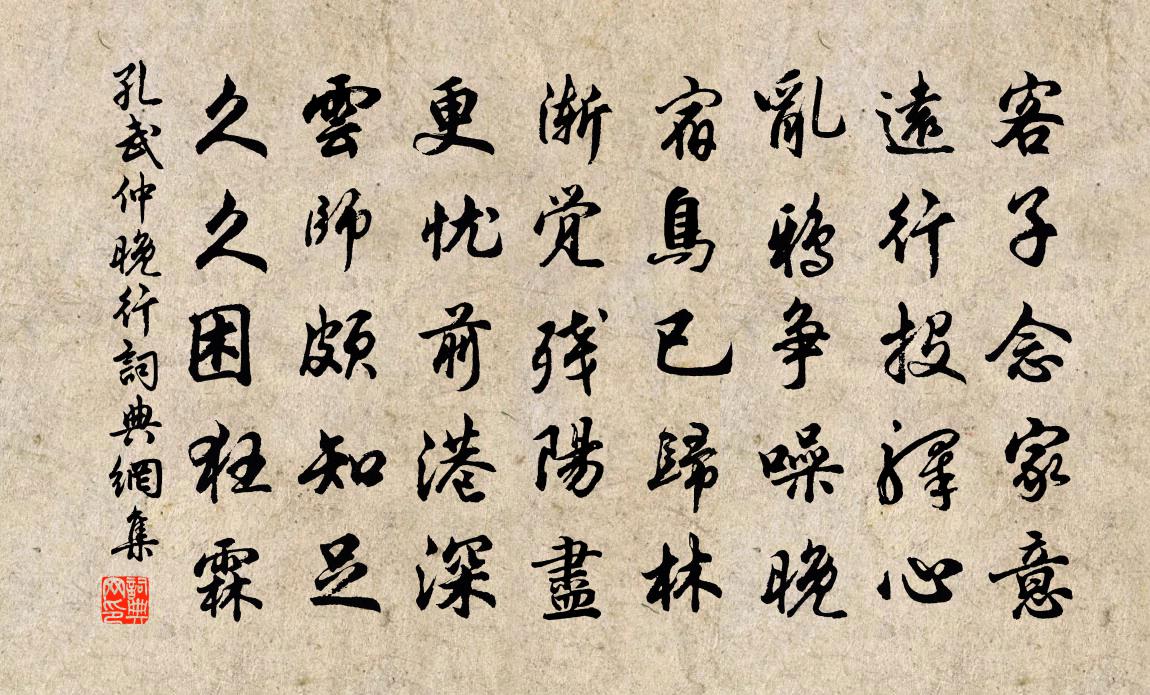 客子念家意
遠行投驛心
亂鴉争噪晚
宿鳥已歸林
漸覚残陽盡
更忧前港深
雲師頗知足
久久困狂霖
孔武仲晚行詞典網集
詞典
网印